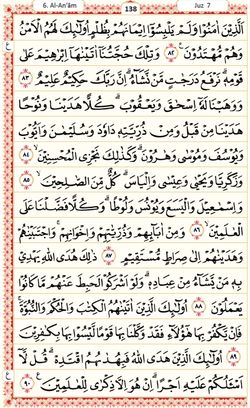 6. Al-An'âm 138 Juz 7
الَّذِينَ آمَنُوا وَلَمْ يَلْبِسُوا إِيمَانَهُمْ بِظُلْمٍ أُولَٰئِكَ لَهُمُ الْأَمْنُ
وَهُمْ مُهْتَدُونَ ۝٨٢ وَتِلْكَ حُجَّتُنَا آتَيْنَاهَا إِبْرَاهِيمَ عَلَىٰ
قَوْمِهِ نَرْفَعُ دَرَجَاتٍ مَنْ نَشَاءُ إِنَّ رَبَّكَ حَكِيمٌ عَلِيمٌ ۝٨٣
وَوَهَبْنَا لَهُ إِسْحَاقَ وَيَعْقُوبَ كُلًّا هَدَيْنَا وَنُوحًا
هَدَيْنَا مِنْ قَبْلُ وَمِنْ ذُرِّيَّتِهِ دَاوُودَ وَسُلَيْمَانَ وَأَيُّوبَ
وَيُوسُفَ وَمُوسَىٰ وَهَارُونَ وَكَذَٰلِكَ نَجْزِي الْمُحْسِنِينَ ۝٨٤
وَزَكَرِيَّا وَيَحْيَىٰ وَعِيسَىٰ وَإِلْيَاسَ كُلٌّ مِنَ الصَّالِحِينَ ۝٨٥
وَإِسْمَاعِيلَ وَالْيَسَعَ وَيُونُسَ وَلُوطًا وَكُلًّا فَضَّلْنَا عَلَى
الْعَالَمِينَ ۝٨٦ وَمِنْ آبَائِهِمْ وَذُرِّيَّاتِهِمْ وَإِخْوَانِهِمْ وَاجْتَبَيْنَاهُمْ
وَهَدَيْنَاهُمْ إِلَىٰ صِرَاطٍ مُسْتَقِيمٍ ۝٨٧ ذَٰلِكَ هُدَى اللَّهِ يَهْدِي
بِهِ مَنْ يَشَاءُ مِنْ عِبَادِهِ وَلَوْ أَشْرَكُوا لَحَبِطَ عَنْهُمْ مَا كَانُوا
يَعْمَلُونَ ۝٨٨ أُولَٰئِكَ الَّذِينَ آتَيْنَاهُمُ الْكِتَابَ وَالْحُكْمَ وَالنُّبُوَّةَ
فَإِنْ يَكْفُرْ بِهَا هَٰؤُلَاءِ فَقَدْ وَكَّلْنَا بِهَا قَوْمًا لَيْسُوا بِهَا بِكَافِرِينَ
۝٨٩ أُولَٰئِكَ الَّذِينَ هَدَى اللَّهُ فَبِهُدَاهُمُ اقْتَدِهْ قُلْ لَا
أَسْأَلُكُمْ عَلَيْهِ أَجْرًا إِنْ هُوَ إِلَّا ذِكْرَىٰ لِلْعَالَمِينَ ۝٩٠